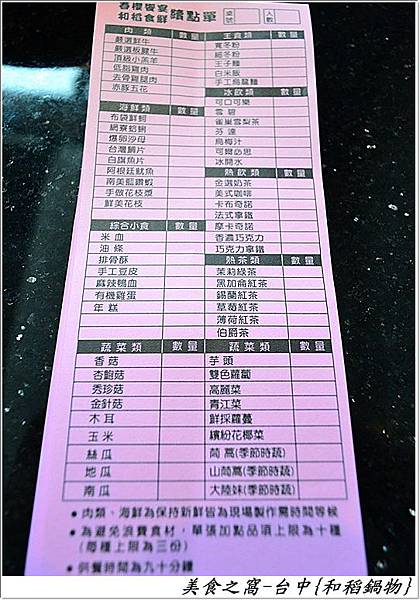 春櫻饗宴
和稻食鮮 續點單
桌號
人數
肉類 數量
嚴選鮮牛
嚴選板腱牛
頂級小羔羊
低脂雞肉
去骨雞腿肉
赤豚五花
海鮮類 數量
布袋鮮蚵
網寮蛤蜊
爆卵沙母
台灣鯛片
白旗魚片
阿根廷魷魚
南美藍鑽蝦
手做花枝漿
鮮美花枝
綜合小食 數量
米血
油條
排骨酥
手工豆皮
麻辣鴨血
有機雞蛋
年糕
主食類 數量
寬冬粉
細冬粉
王子麵
白米飯
手工烏龍麵
冰飲類 數量
可口可樂
雪碧
雀巢雪梨茶
芬達
烏梅汁
可爾必思
冰開水
熱飲類 數量
金選奶茶
美式咖啡
卡布奇諾
法式拿鐵
摩卡奇諾
香濃巧克力
巧克力拿鐵
熱茶類 數量
茉莉綠茶
黑加侖紅茶
錫蘭紅茶
草莓紅茶
薄荷紅茶
伯爵茶
蔬菜類 數量 蔬菜類 數量
香菇 芋頭
杏鮑菇 雙色蘿蔔
秀珍菇 高麗菜
金針菇 青江菜
木耳 鮮採蘿蔓
玉米 繽紛花椰菜
絲瓜 茼蒿(季節時蔬)
地瓜 山茼萵(季節時蔬)
南瓜 大陸妹(季節時蔬)
●肉類、海鮮為保持新鮮皆為現場製作需時間等候
●為避免浪費食材，單張加點品項上限為十種
(每種上限為三份)
●供餐時間為九十分鐘
美食之窩-台中{和稻鍋物}